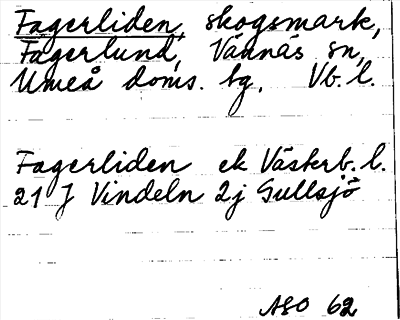 Fagerliden, skogsmark,
Fagerlund, Vännäs sn,
Umeå doms. bg. Vb. l.
Fagerliden ek Västerb. l.
21 J Vindeln 2j Gullsjö
ASO 62